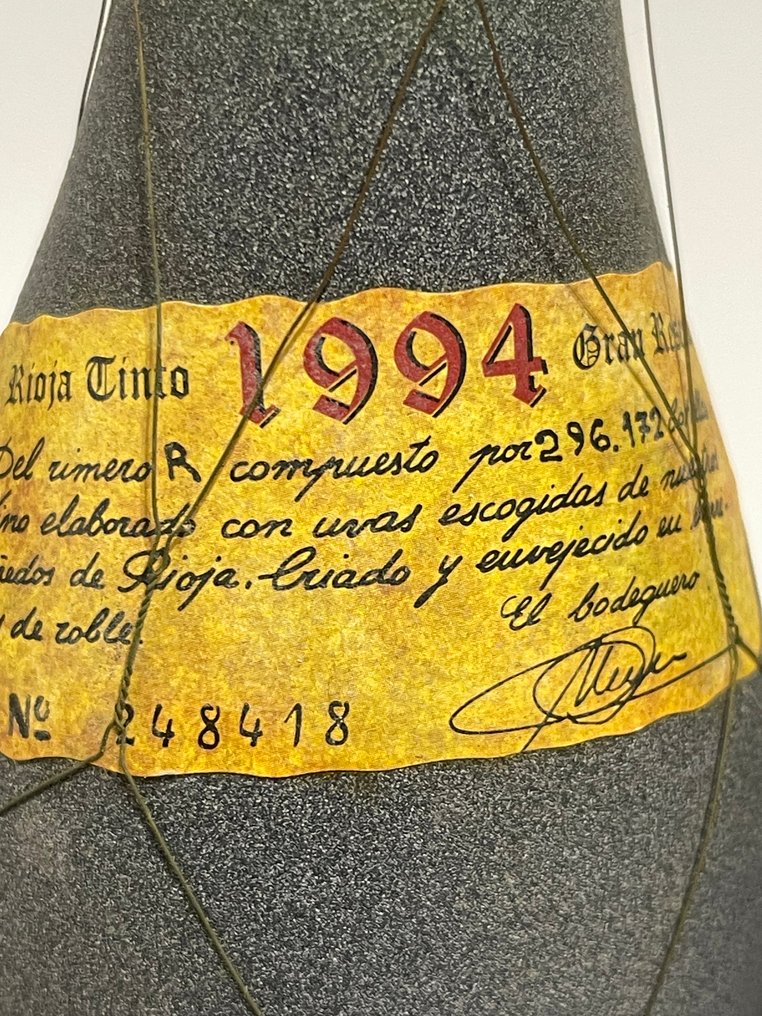 Rioja Tinto 1994 Gran
Del rimero R compuesto por 296.172
elaborado con uvas escogidas de
de Rioja. Criado y envejecido en
de roble.
El bodeguero
Nº 248418